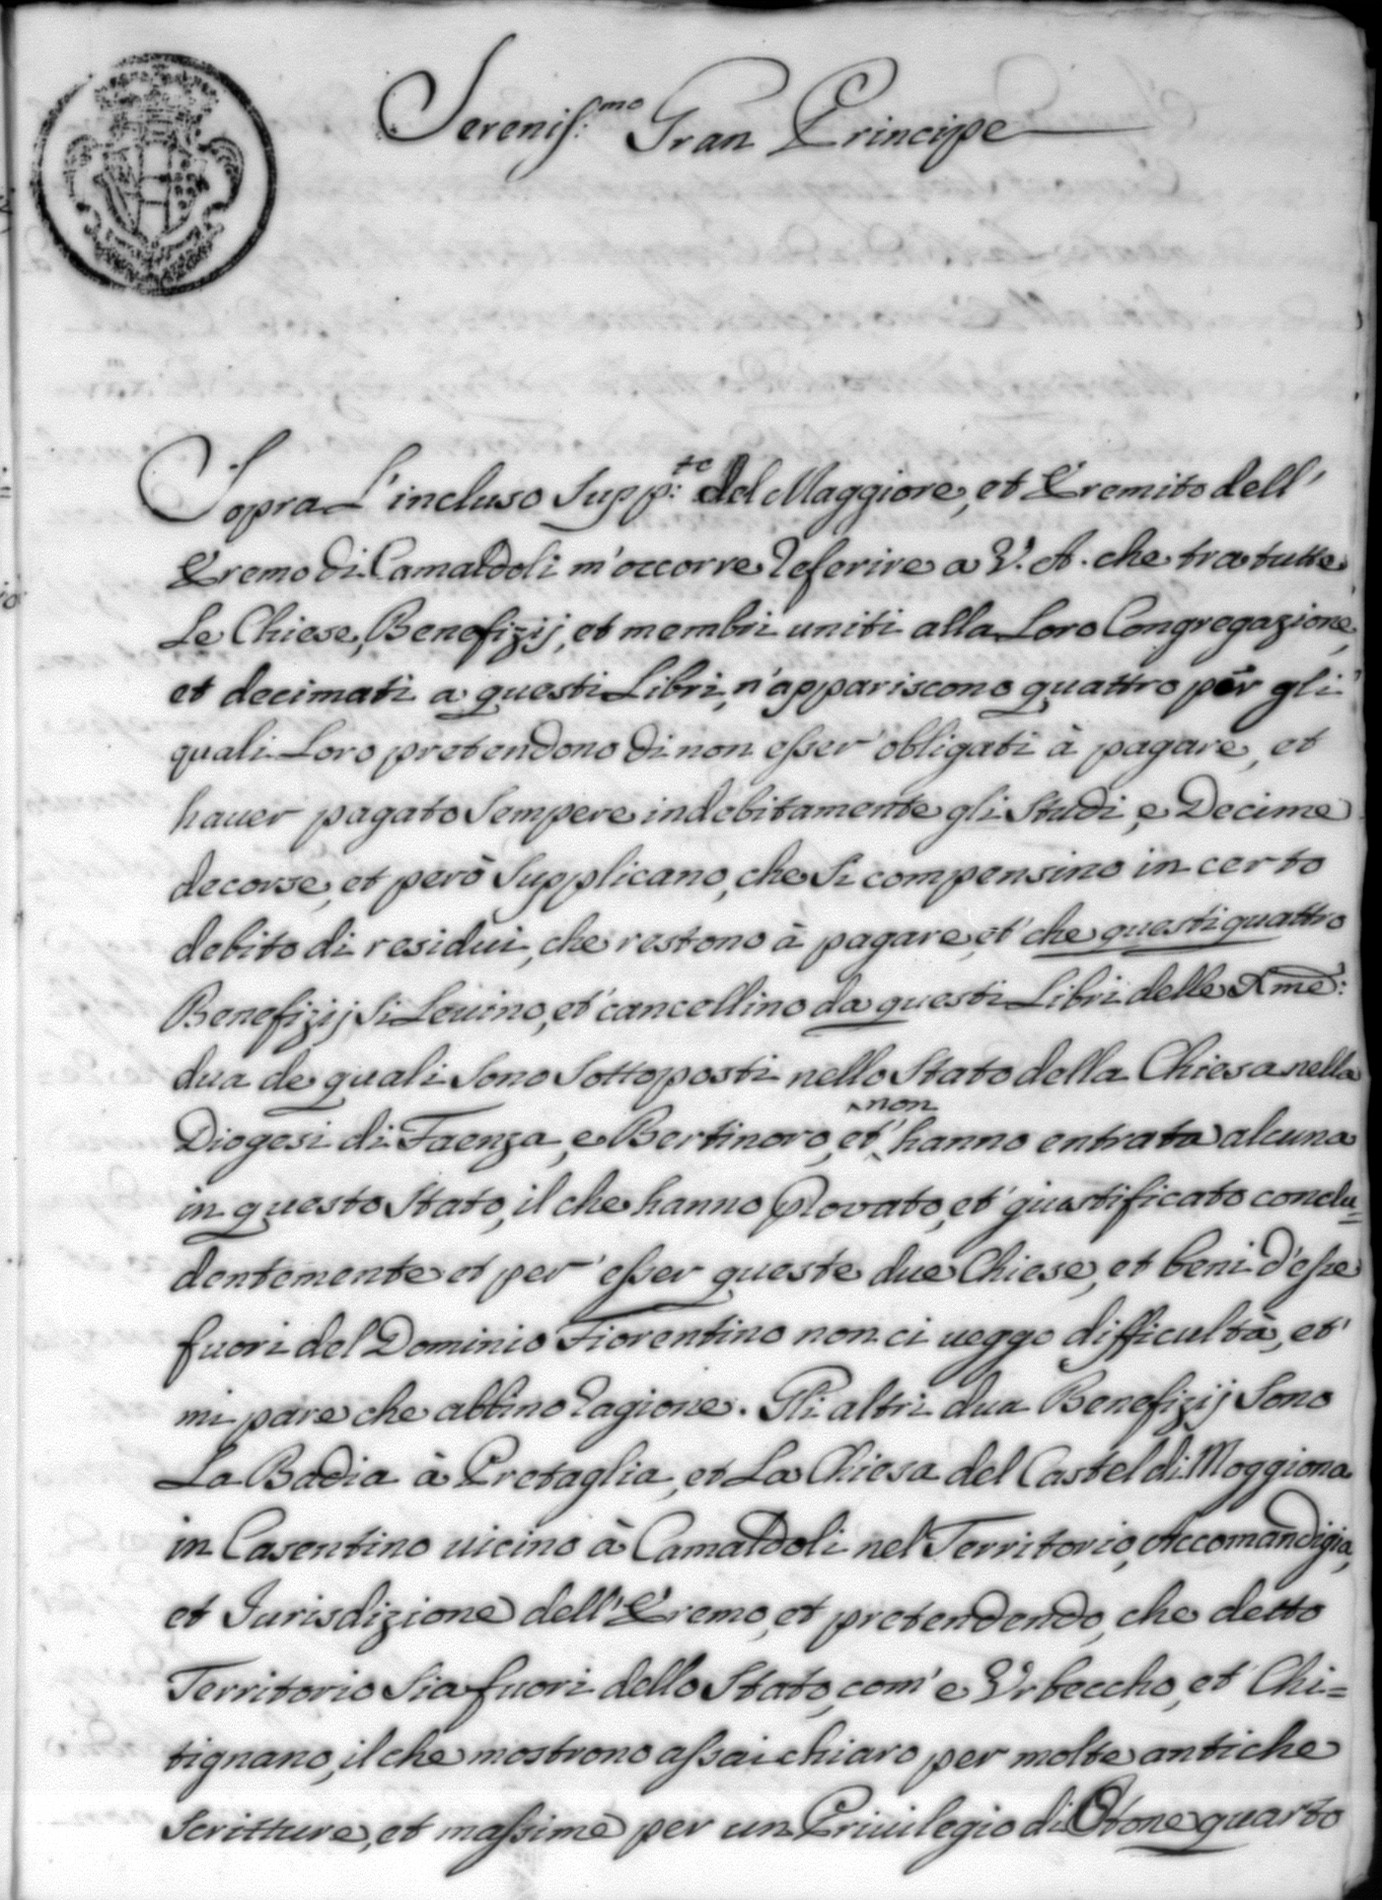 Sereniss:mo Gran Principe
Sopra L'incluso Supp:te del Maggiore, et Eremito dell'
Eremo di Camaldoli m'occorre referire a V. A. che tra tutte
Le Chiese, Benefizij, et membri uniti alla Loro Congregazione,
et decimati a questi Libri, n'appariscono quattro per gli
quali Loro pretendono di non esser obligati à pagare, et
hauer pagato Sempere indebitamente gli Studi, e Decime
decorse, et però Supplicano, che Si compensino in certo
debito di residui, che restono à pagare, et che questi quattro
Benefizij Si Leuino, et cancellino da questi Libri delle Xme:
dua de quali Sono Sottoposti nello Stato della Chiesa nella
Diogesi di Faenza, e Bertinoro, et non hanno entrata alcuna
in questo Stato, il che hanno Provato, et giustificato conclu=
dentemente et per esser queste due Chiese, et beni d'esse
fuori del Dominio Fiorentino non ci ueggo difficultà, et
mi pare che abbino ragione. Gli altri dua Benefizij Sono
La Badia à Pretaglia, et La Chiesa del Castel di Moggiona
in Casentino uicino à Camaldoli nel Territorio, Accomandigia,
et Iurisdizione dell'Eremo, et pretendendo, che detto
Territorio Sia fuori dello Stato, com'e Vrbeccho, et Chi=
tignano, il che mostrono assai chiaro per molte antiche
Scritture, et massime per un Priuilegio di Otone quarto